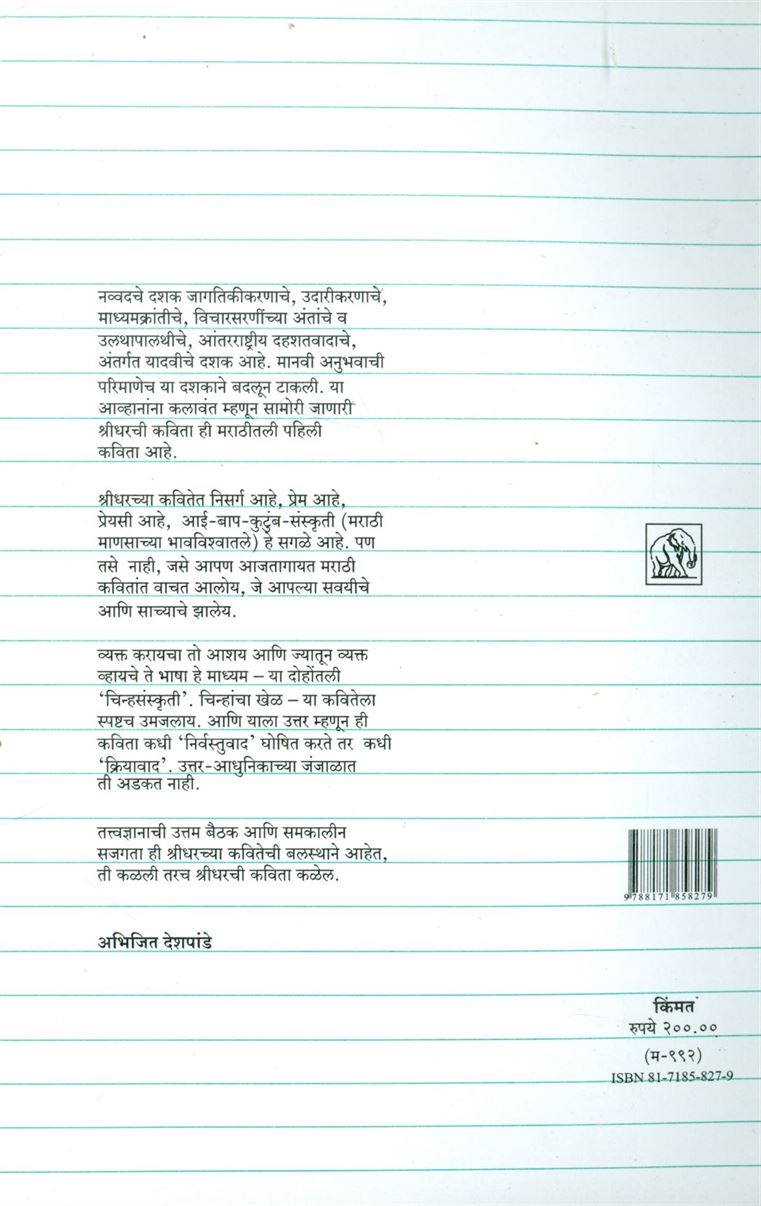 नव्वदचे दशक जागतिकीकरणाचे, उदारीकरणाचे,
माध्यमक्रांतीचे, विचारसरणींच्या अंतांचे व
उलथापालथीचे, आंतरराष्ट्रीय दहशतवादाचे,
अंतर्गत यादवीचे दशक आहे. मानवी अनुभवाची
परिमाणेच या दशकाने बदलून टाकली. या
आव्हानांना कलावंत म्हणून सामोरी जाणारी
श्रीधरची कविता ही मराठीतली पहिली
कविता आहे.
श्रीधरच्या कवितेत निसर्ग आहे, प्रेम आहे,
प्रेयसी आहे, आई-बाप-कुटुंब-संस्कृती (मराठी
माणसाच्या भावविश्वातले) हे सगळे आहे. पण
तसे नाही, जसे आपण आजतागायत मराठी
कवितांत वाचत आलोय, जे आपल्या सवयीचे
आणि साच्याचे झालेय.
व्यक्त करायचा तो आशय आणि ज्यातून व्यक्त
व्हायचे ते भाषा हे माध्यम – या दोहोंतली
‘चिन्हसंस्कृती’. चिन्हांचा खेळ – या कवितेला
स्पष्टच उमजलाय. आणि याला उत्तर म्हणून ही
कविता कधी ‘निर्वस्तुवाद’ घोषित करते तर कधी
‘क्रियावाद’. उत्तर-आधुनिकाच्या जंजाळात
ती अडकत नाही.
तत्त्वज्ञानाची उत्तम बैठक आणि समकालीन
सजगता ही श्रीधरच्या कवितेची बलस्थाने आहेत,
ती कळली तरच श्रीधरची कविता कळेल.
अभिजित देशपांडे
9788171858279
किंमत
रुपये २००.००
(म-९९२)
ISBN 81-7185-827-9